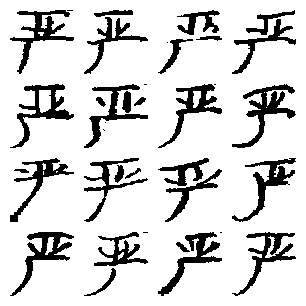 严 严 严 严
严 严 严 严
严 严 严 严
严 严 严 严